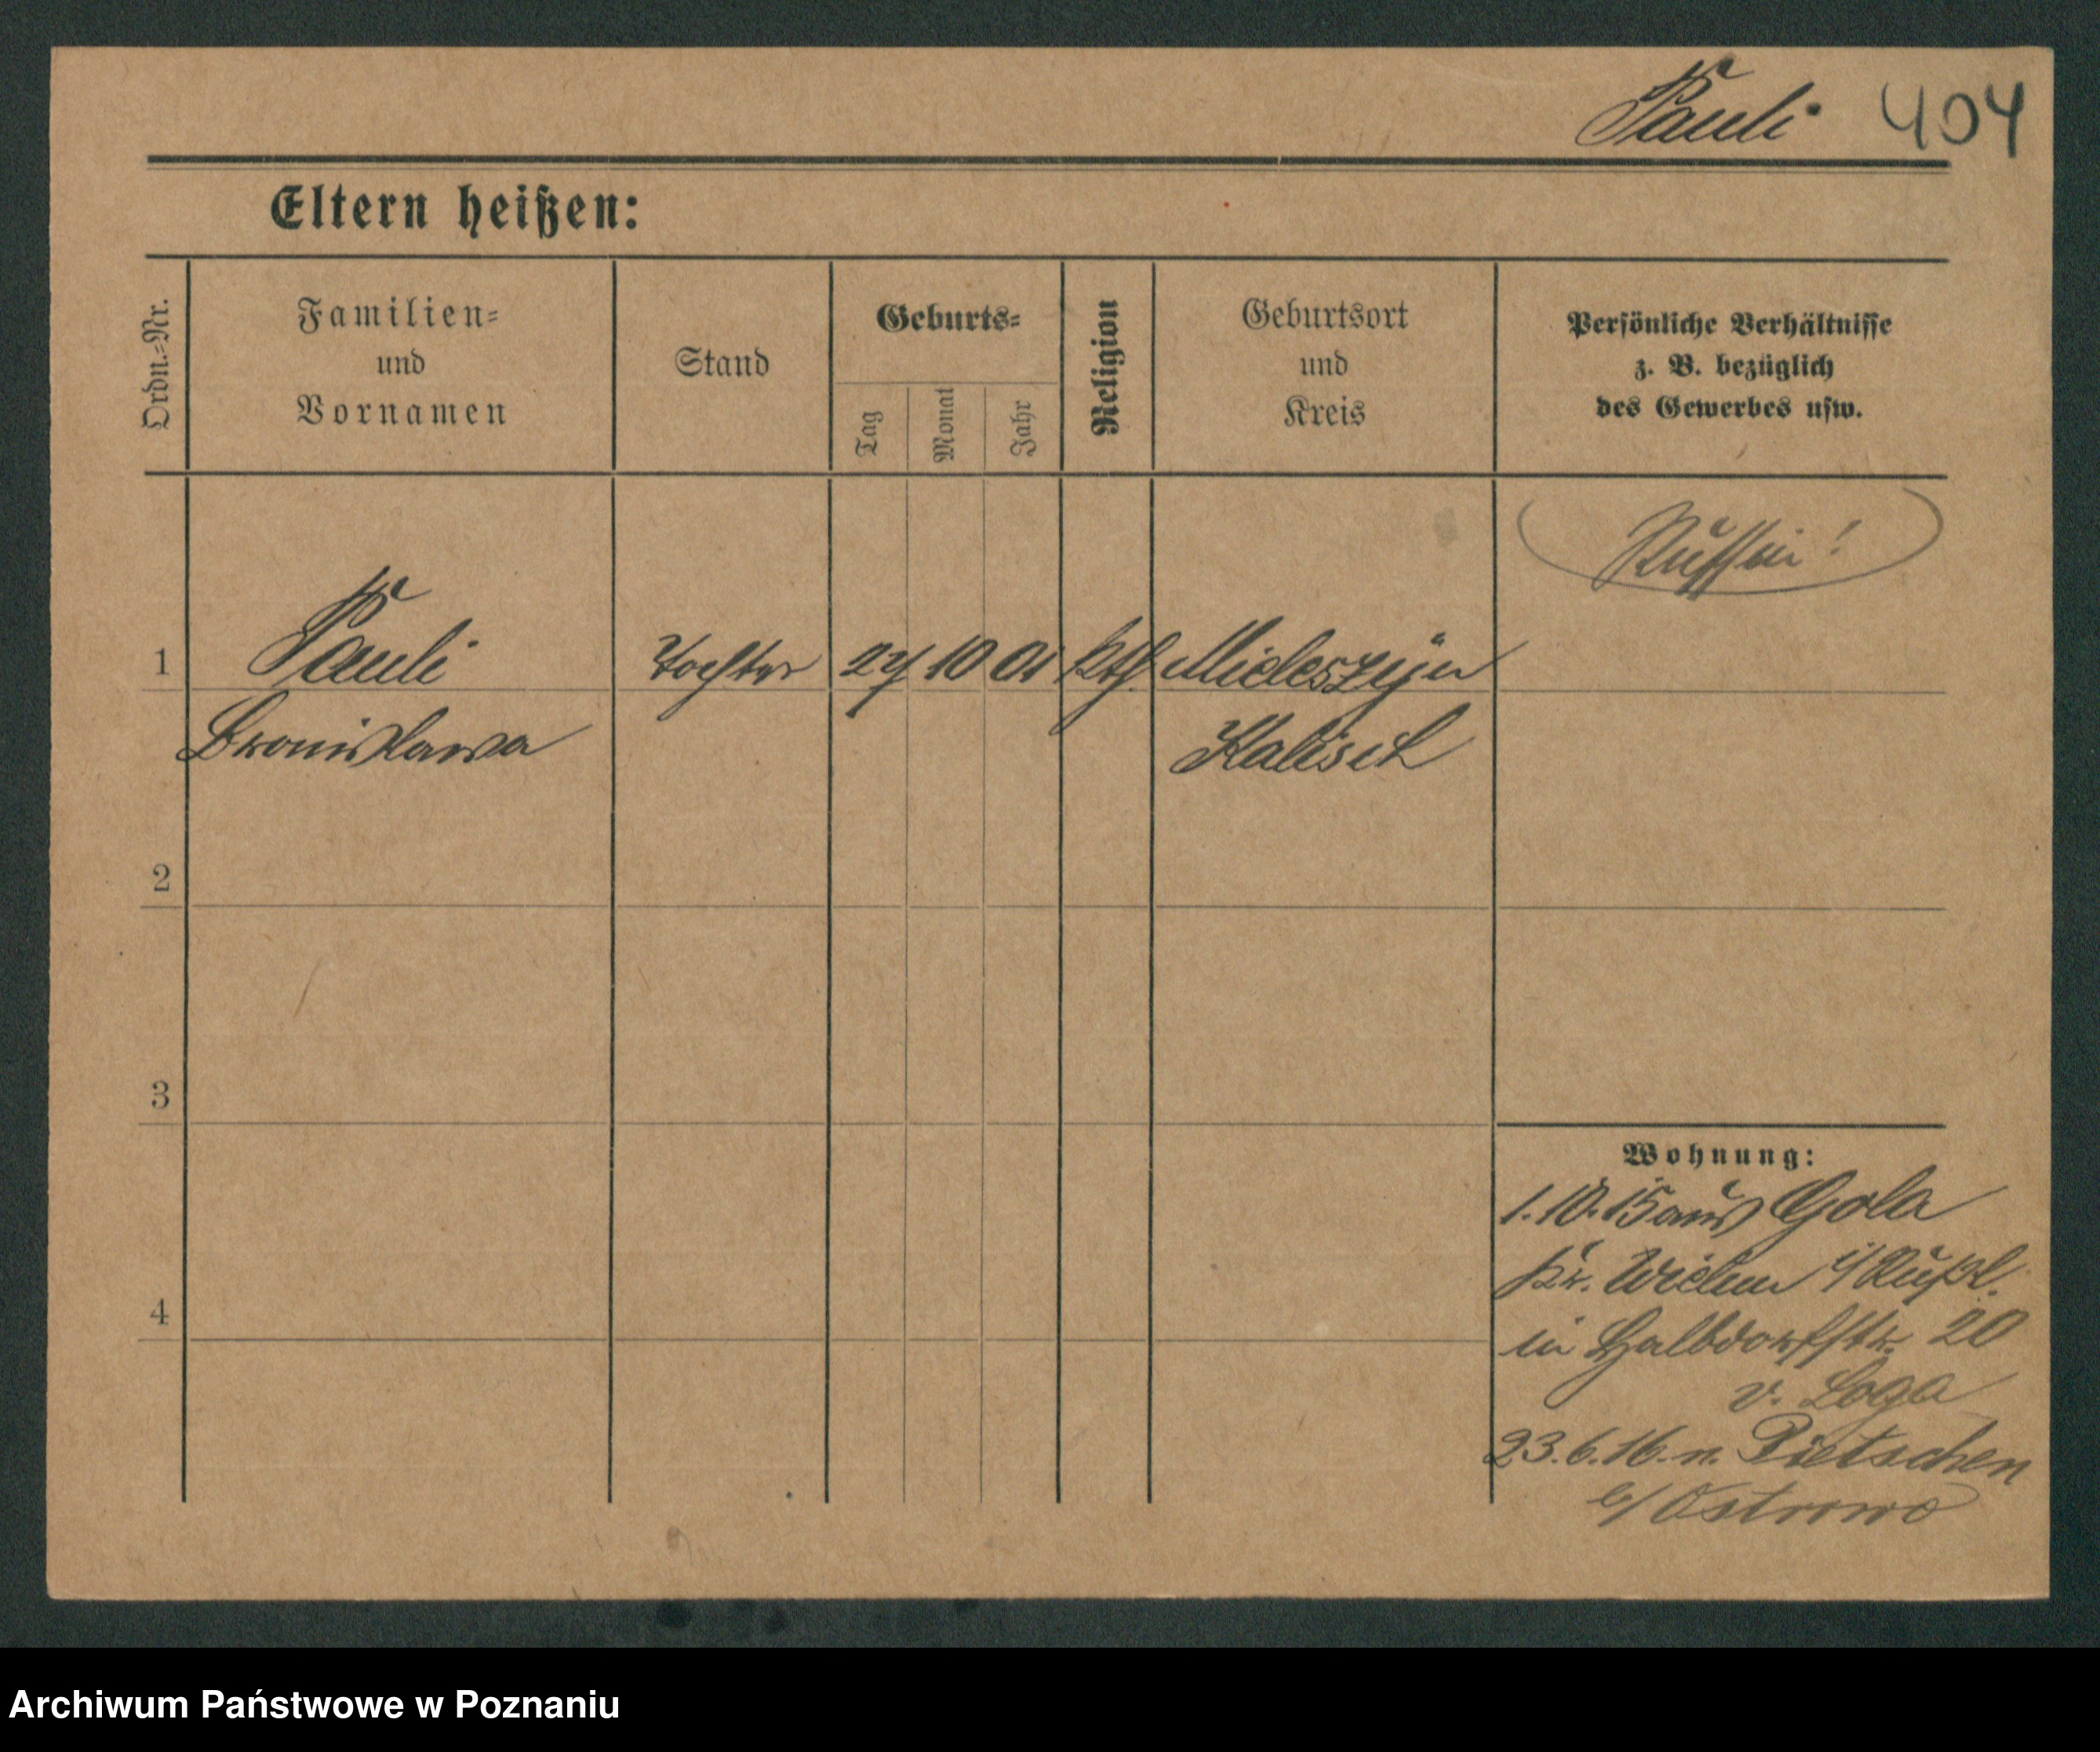 Pauli 404
Eltern heißen:
Ordn.-Nr.
Familien-
und
Vornamen
Stand
Geburts-
Tag
Monat
Jahr
Religion
Geburtsort
und
Kreis
Persönliche Verhältnisse
z. B. bezüglich
des Gewerbes usw.
Russin!
1 Pauli Tochter 27 10 01 kth. Mieleszyn
Bronislawa Kalisch
2
3
4
Wohnung:
1.10.15 aus Gola
Kr. Wielun i/Rußl.
in Halbdorfstr. 20
v. Loga
23.6.16. n. Pietschen
b/ Ostrowo
Archiwum Państwowe w Poznaniu